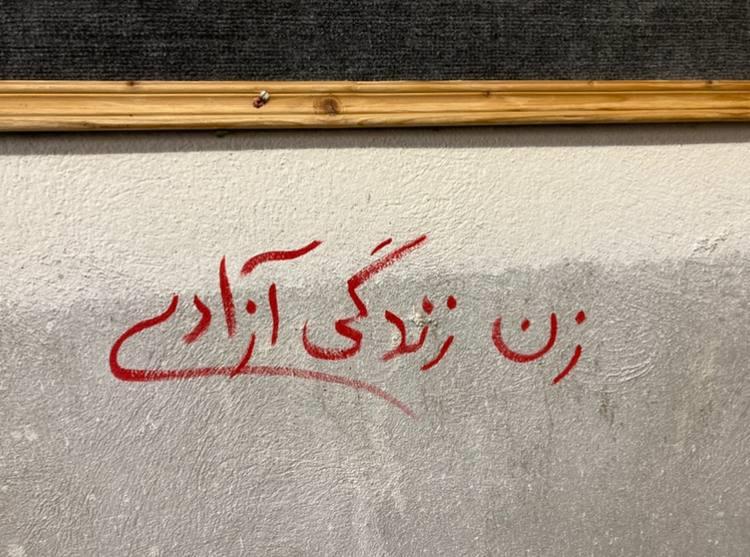 زن زندگی آزادی